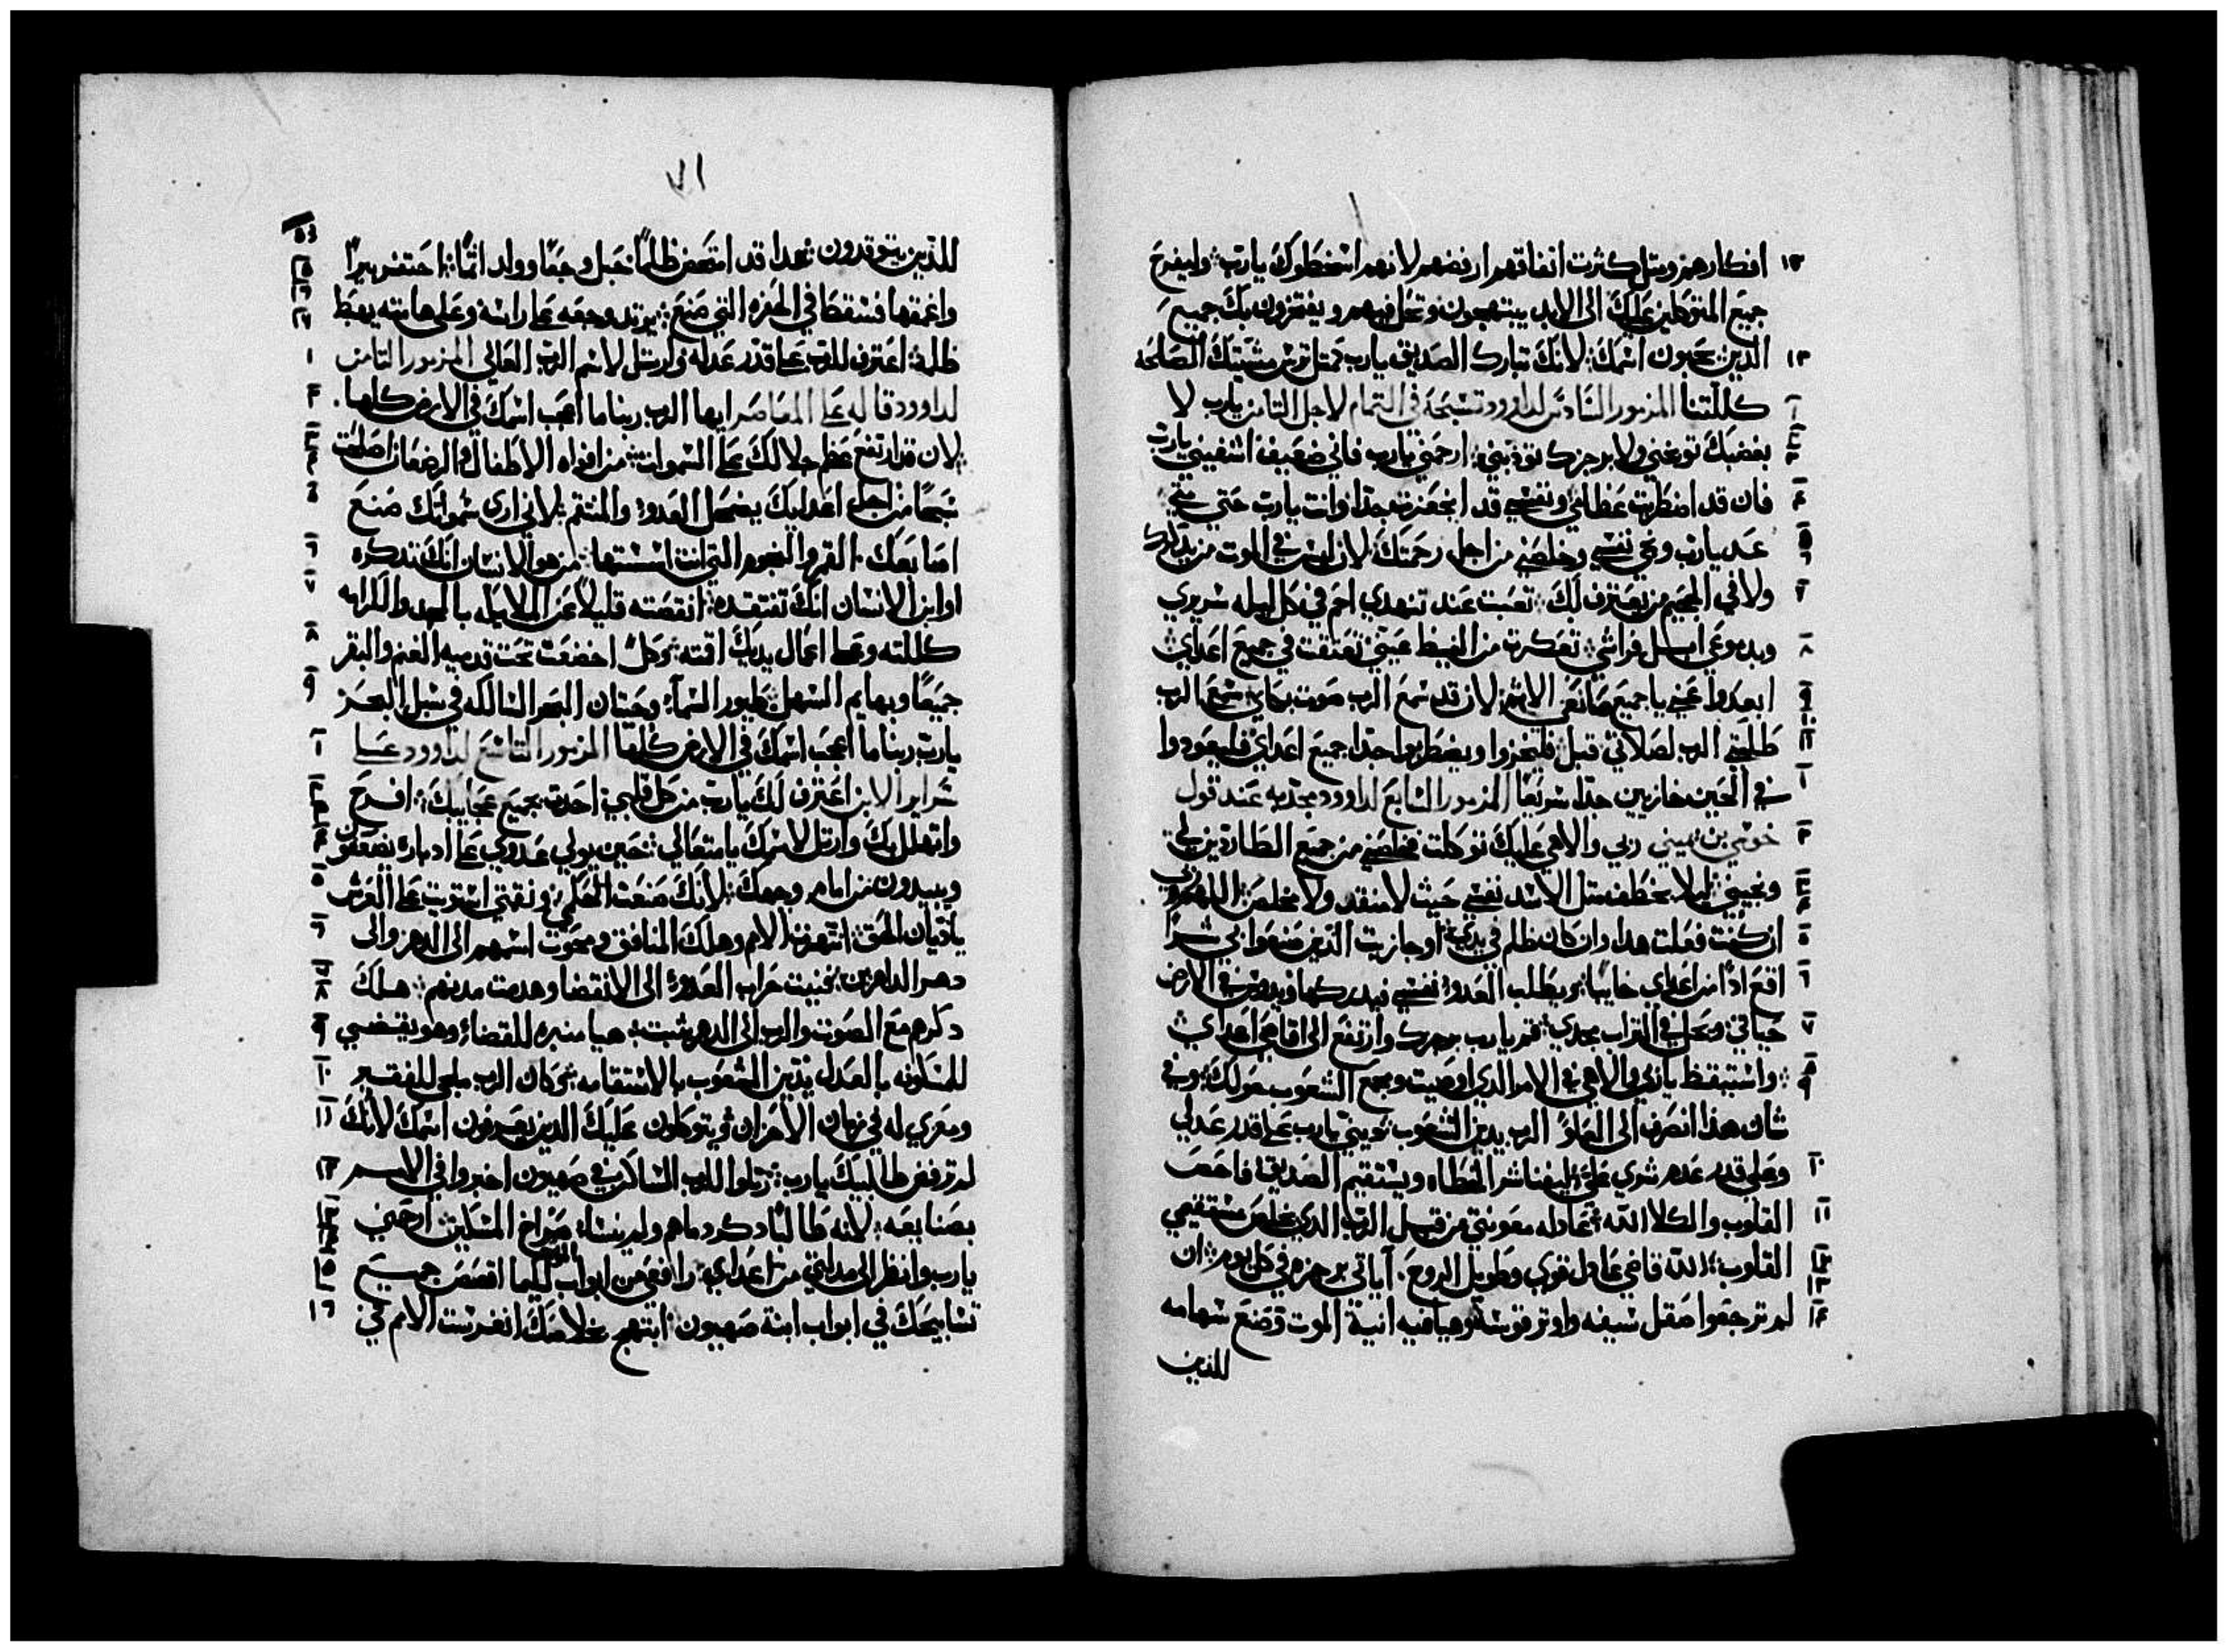 ١٢ افكارهم ومثل كثرت انفاقهم ارفضهم لانهم اسخطوك يارب وليفرح
جميع المتوكلين عليك الى الابد يبتهجون وتحل فيهم ويفتخرون بك جميع
١٣ الذين يحبون اسمك لانك تبارك الصديق يارب كمثل ترس مشيتك الصالحه
١ كللتنا المزمور السادس لداوود تسبحه في التمام لاجل الثامن يارب لا
بغضبك توبخني ولا برجزك تودبني ارحمني يارب فاني ضعيف اشفيني يارب
٤ فان قد اضطربت عظامي ونفسي قد انجعزت جدا وانت يارب حتي متي
٥ ٦ عد يارب ونجي نفسي وخلصني من اجل رحمتك لان ليس في الموت من يذكرك
٧ ولا في الجحيم من يعترف لك تعبت عند تنهدي احم في كل ليله سريري
٨ وبدموعي ابل فراشي تعكرت من الغيظ عيني تعتقت في جميع اعداي
٩ ابعدوا عني يا جميع صانعي الاثم لان قد سمع الرب صوت بكاي سمع الرب
١٠ ١١ طلبتي الرب لصلاتي قبل فليخزوا ويضطربوا جدا جميع اعداي فليعودوا
١ في الحين خازيين جدا سريعا المزمور السابع لداوود مجد به عند قول
٢ خوسي بن يميني ربي والاهي عليك توكلت فخلصني من جميع الطاردين لي
٣ ٤ ونجيني ليلا يخطف مثل الاسد نفسي حيث لا منقد ولا مخلص اللهم ربي
٥ ان كنت فعلت هدا وان كان ظلم في يدي او جازيت الذين صنعوا بي شرا
٦ اقع اذا من اعداي خايبا ويطلب العدو نفسي فيدركها ويدوس في الارض
٧ حياتي ويحل في التراب مجدي قم يارب برجزك وارتفع الى اقاصي اعداي
٨ ٩ واستيقظ ياربي والاهي في الامر الدي اوصيت ومجمع الشعوب حولك يوب في
شان هذا انصرف الى العلو الرب يدين الشعوب ديني يارب على قدر عدلي
١٠ وعلى قدر عدم شري علي ليفنا شر الخطاه ويستقيم الصديق فاحص
١١ القلوب والكلا الله بحادله معونتي من قبل الرب الدي يخلص مستقيمي
١٢ ١٣ القلوب الله قاضي عادل قوي وطويل الروح اياتي برجزه في كل يوم ان
١٤ لم ترجعوا صقل سيفه واوتر قوسه وهيا فيه انية الموت وصنع سهامه
للذين
٧١
للذين يتوقدون بهدا قد امتخض ظلما حبل وجعا وولد اثما احتفر بيرا
واعمقها فسقط في الحفره التي صنع يرتد وجعه على راسه وعلى هامته يهبط
ظلمه اعترف للرب على قدر عدله وارتل لاسم الرب العالي المزمور الثامن ١
لداوود قاله على المعاصر ايها الرب ربنا ما اعجب اسمك في الارض كلها ٢
لان قد ارتفع عظم جلالك على السموات من افواه الاطفال والرضعان اصلحت ٣
سبحا من اجل اعدايك يضمحل العدو والمنتقم لاني ارى سمواتك صنع ٥
اصابعك القمر والنجوم التي انت اسستها من هو الانسان انك تذكره ٦
او ابن الانسان انك تفتقده انقصته قليلا عن الملايكه بالمجد والكرامه ٧
كللته وعلى اعمال يديك اقته وكل اخضعت تحت قدميه الغنم والبقر ٨
جميعا وبهايم السهل طيور السما وحيتان البحر السالكه في سبل البحر ٩
يارب ربنا ما اعجب اسمك في الارض كلها المزمور التاسع لداوود على ١
سراير الابن اعترف لك يارب من كل قلبي احدث بجميع عجايبك افرح
واتهلل بك وارتل لاسمك يا متعالي حين يولي عدوي على ادباره يضعفون ٤
ويبيدون من امام وجهك لانك صنعت حكمي ونقمتي استويت على العرش ٥
ياديان الحق انتهرت الامم وهلك المنافق ومحوت اسمهم الى الدهر والى ٦
دهر الداهرين فنيت حراب العدو الى الانقضا وهدمت مدنهم هلك ٧ ٨
دكرهم مع الصوت والرب الى الدهر يثبت هيا منبره للقضاء وهو يقضي ٩
للمسكونه بالعدل يدين الشعوب بالاستقامه وكان الرب ملجى للفقير ١٠
ومعزي له في زمان الاحزان ويتوكلون عليك الذين يعرفون اسمك لانك ١١
لم ترفض طالبيك يارب رتلوا للرب الساكن في صهيون اخبروا في الامم ١٢
بصنايعه لانه طالبا دكر دماهم ولم ينسا صراخ المساكين ارحمني
يارب وانظر الى مدلتي من اعداي رافعي من ابواب الموت ليكما اقصص جميع ١٥
تسابيحك في ابواب ابنة صهيون ابتهج بخلاصك انغرست الامم في ١٦